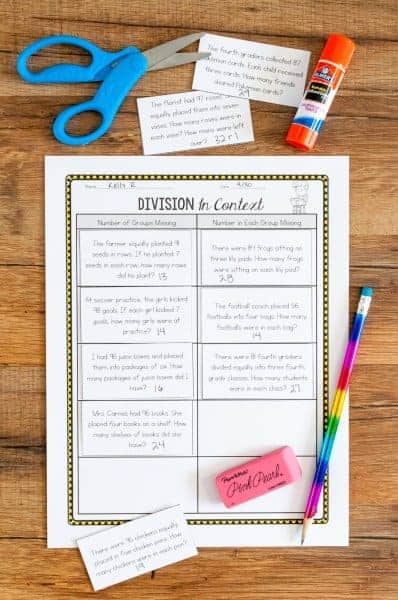 The fourth graders collected 87
Pokemon cards. Each child received
three cards. How many friends
shared Pokemon cards?
29
The florist had 97 roses
equally planted them into seven
vases. How many roses were
in each vase? How many were left
over? 32 r 1
ELMER'S
Name Kelly R Date 9/20
DIVISION In Context
Number of Groups Missing
Number in Each Group Missing
The farmer equally planted 91
seeds in rows. If he planted 7
seeds in each row, how many rows
did he plant? 13
There were 84 frogs sitting on
three lily pads. How many frogs
were sitting on each lily pad?
28
At soccer practice, the girls kicked
98 goals. If each girl kicked 7
goals, how many girls were at
practice? 14
The football coach placed 56
footballs into four bags. How many
footballs were in each bag?
14
I had 96 juice boxes and placed
them into packages of six. How
many packages of juice boxes did I
have? 16
There were 81 fourth graders
divided equally into three fourth
grade classes. How many students
were in each class? 27
Mrs. Carnes had 96 books. She
placed four books on a shelf. How
many shelves of books did she
have? 24
Paper Mate
Pink Pearl
There were 95 chickens equally
placed in five chicken pens. How
many chickens were in each pen?
19